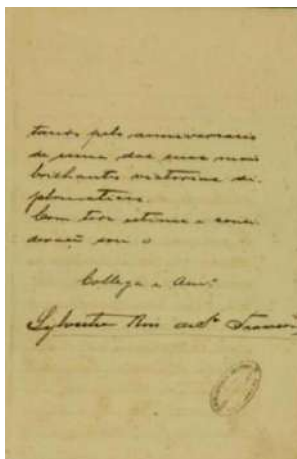 tando pelo anniversario
de uma das suas mais
brilhantes victorias di-
plomaticas.
Com toda estima e consi-
deração sou o
Collega e Amº
Sylvestre